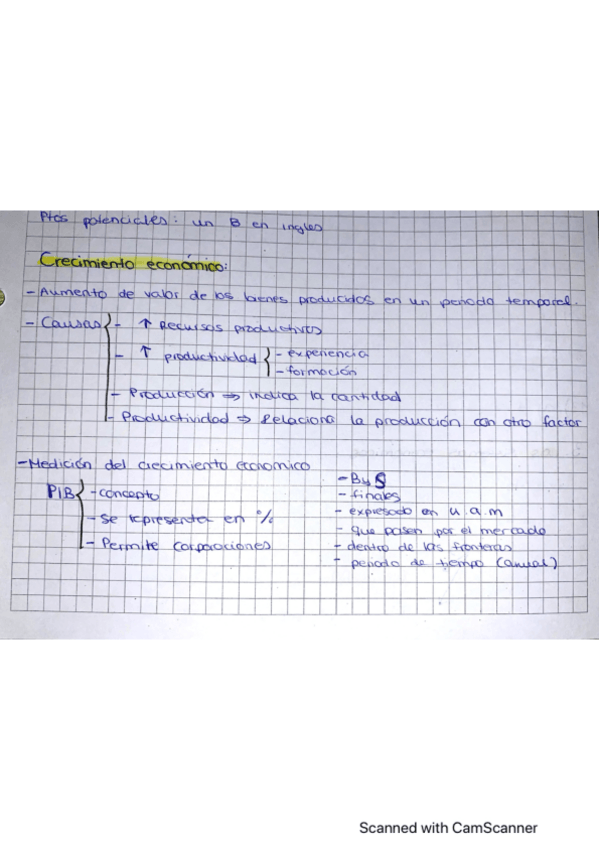 Ptos potenciales: un B en ingles
Crecimiento económico:
- Aumento de valor de los bienes producidos en un periodo temporal.
- Causas - ↑ Recursos productivos
- ↑ productividad - experiencia
- formación
- Producción ⇒ indica la cantidad
- Productividad ⇒ Relaciona la producción con otro factor
- Medición del crecimiento económico
PIB - concepto
- Se representa en %
- Permite
- B y S
- finales
- expresado en u.a.m
- que pasen por el mercado
- dentro de las fronteras
- periodo de tiempo (anual)
Scanned with CamScanner